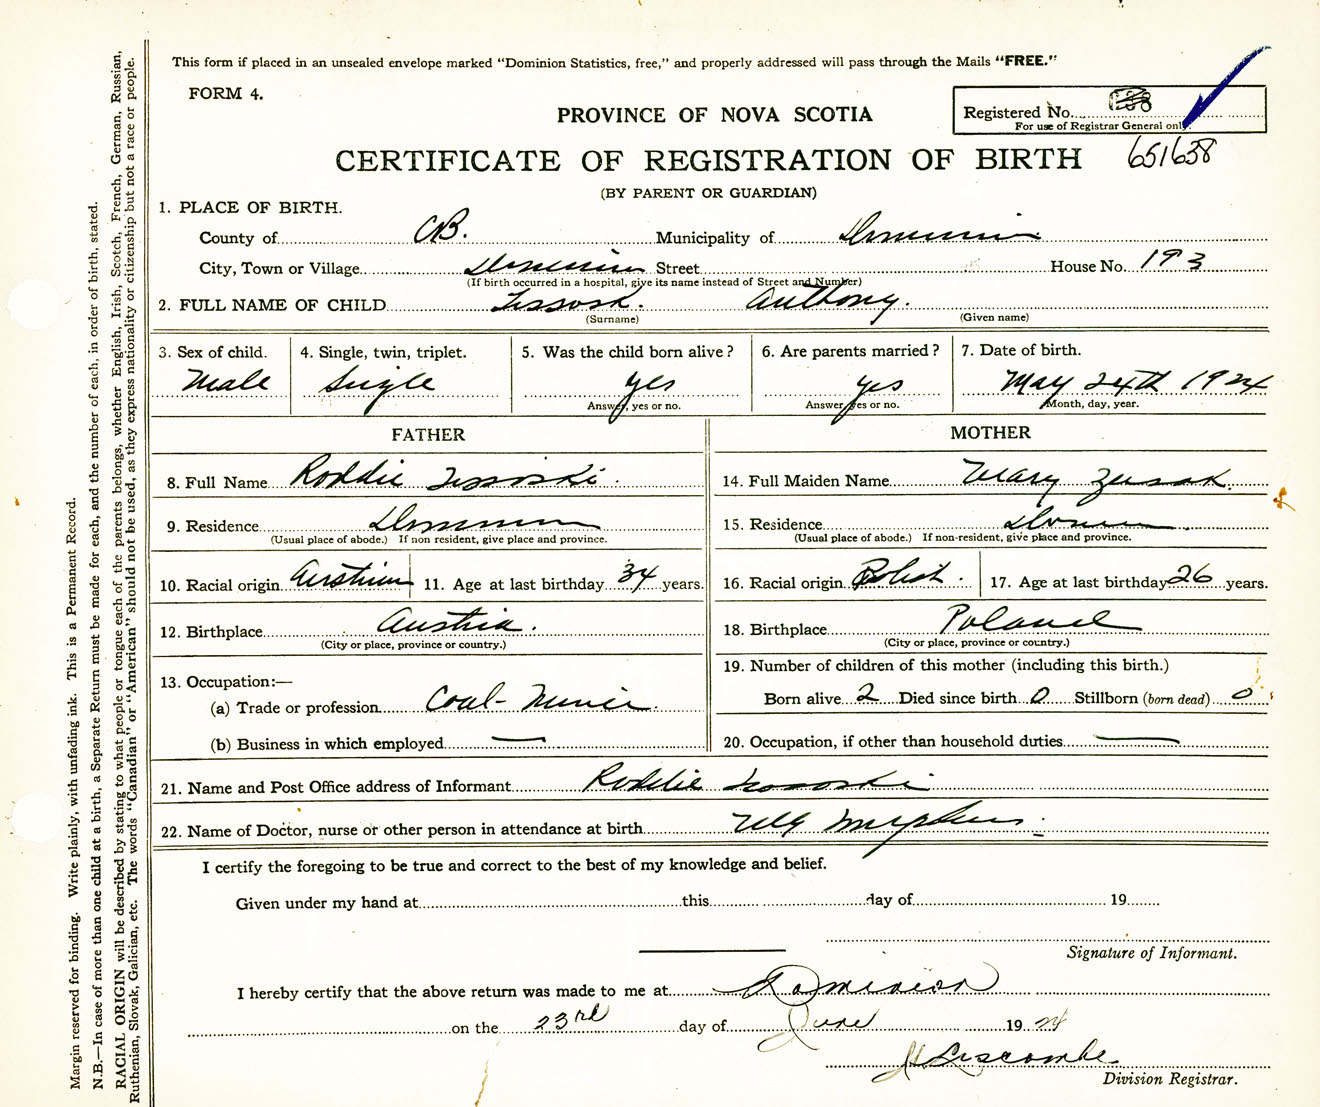 This form if placed in an unsealed envelope marked "Dominion Statistics, free," and properly addressed will pass through the Mails "FREE."
FORM 4.
PROVINCE OF NOVA SCOTIA
Registered No.
For use of Registrar General only.
CERTIFICATE OF REGISTRATION OF BIRTH 651638
(BY PARENT OR GUARDIAN)
1. PLACE OF BIRTH.
County of CB. Municipality of Dominion
City, Town or Village Dominion Street House No. 193
(If birth occurred in a hospital, give its name instead of Street and Number)
2. FULL NAME OF CHILD Anthony.
(Surname) (Given name)
3. Sex of child. 4. Single, twin, triplet. 5. Was the child born alive? 6. Are parents married? 7. Date of birth.
Male Single yes yes May 24th 1924
Answer, yes or no. Answer, yes or no. Month, day, year.
FATHER MOTHER
8. Full Name Roddie 14. Full Maiden Name Mary
9. Residence Dominion 15. Residence Dominion
(Usual place of abode.) If non resident, give place and province. (Usual place of abode.) If non-resident, give place and province.
10. Racial origin Austrian 11. Age at last birthday 34 years. 16. Racial origin Polish. 17. Age at last birthday 26 years.
12. Birthplace Austria. 18. Birthplace Poland
(City or place, province or country.) (City or place, province or country.)
13. Occupation:— 19. Number of children of this mother (including this birth.)
(a) Trade or profession Coal-Miner. Born alive 2 Died since birth 0 Stillborn (born dead) 0
(b) Business in which employed — 20. Occupation, if other than household duties —
21. Name and Post Office address of Informant Roddie
22. Name of Doctor, nurse or other person in attendance at birth
I certify the foregoing to be true and correct to the best of my knowledge and belief.
Given under my hand at this day of 19
Signature of Informant.
I hereby certify that the above return was made to me at Dominion
on the 23rd day of June 1924
Liscombe
Division Registrar.
Margin reserved for binding. Write plainly, with unfading ink. This is a Permanent Record.
N.B.—In case of more than one child at a birth, a Separate Return must be made for each, and the number of each, in order of birth, stated.
RACIAL ORIGIN will be described by stating to what people or tongue each of the parents belongs, whether English, Irish, Scotch, French, German, Russian,
Ruthenian, Slovak, Galician, etc. The words "Canadian" or "American" should not be used, as they express nationality or citizenship but not a race or people.